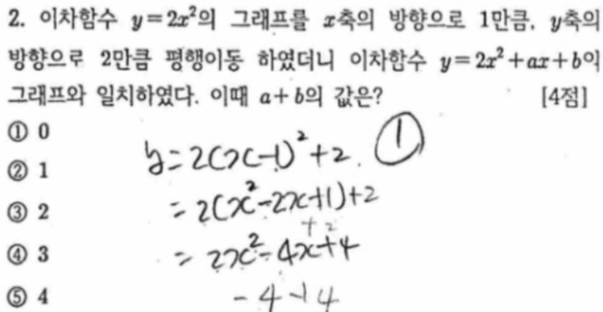 2. 이차함수 y=2x²의 그래프를 x축의 방향으로 1만큼, y축의
방향으로 2만큼 평행이동 하였더니 이차함수 y=2x²+ax+b의
그래프와 일치하였다. 이때 a+b의 값은? [4점]
① 0
② 1
③ 2
④ 3
⑤ 4
y=2(x-1)²+2. ①
=2(x²-2x+1)+2
+2
=2x²-4x+4
-4+4